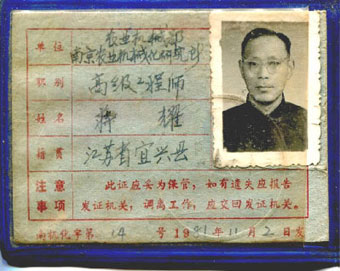 单位 农业机械部
南京农业机械化研究所
职别 高级工程师
姓名 蒋耀
籍贯 江苏省宜兴县
注意事项 此证应妥为保管,如有遗失应报告
发证机关,调离工作,应交回发证机关。
南机化字第 14 号 1981年11月2日发